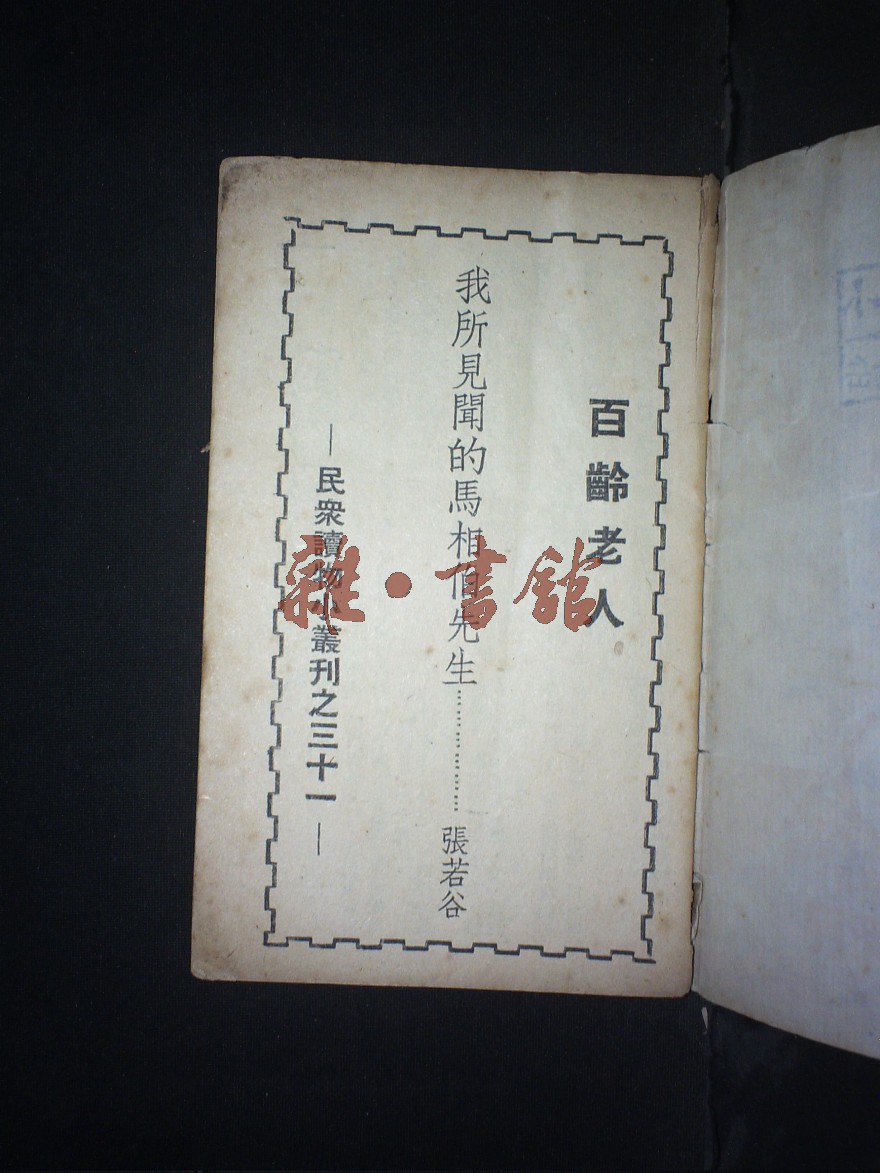 百齡老人
我所見聞的馬相伯先生……………張若谷
—民衆讀物小叢刊之三十一—
雜·書館